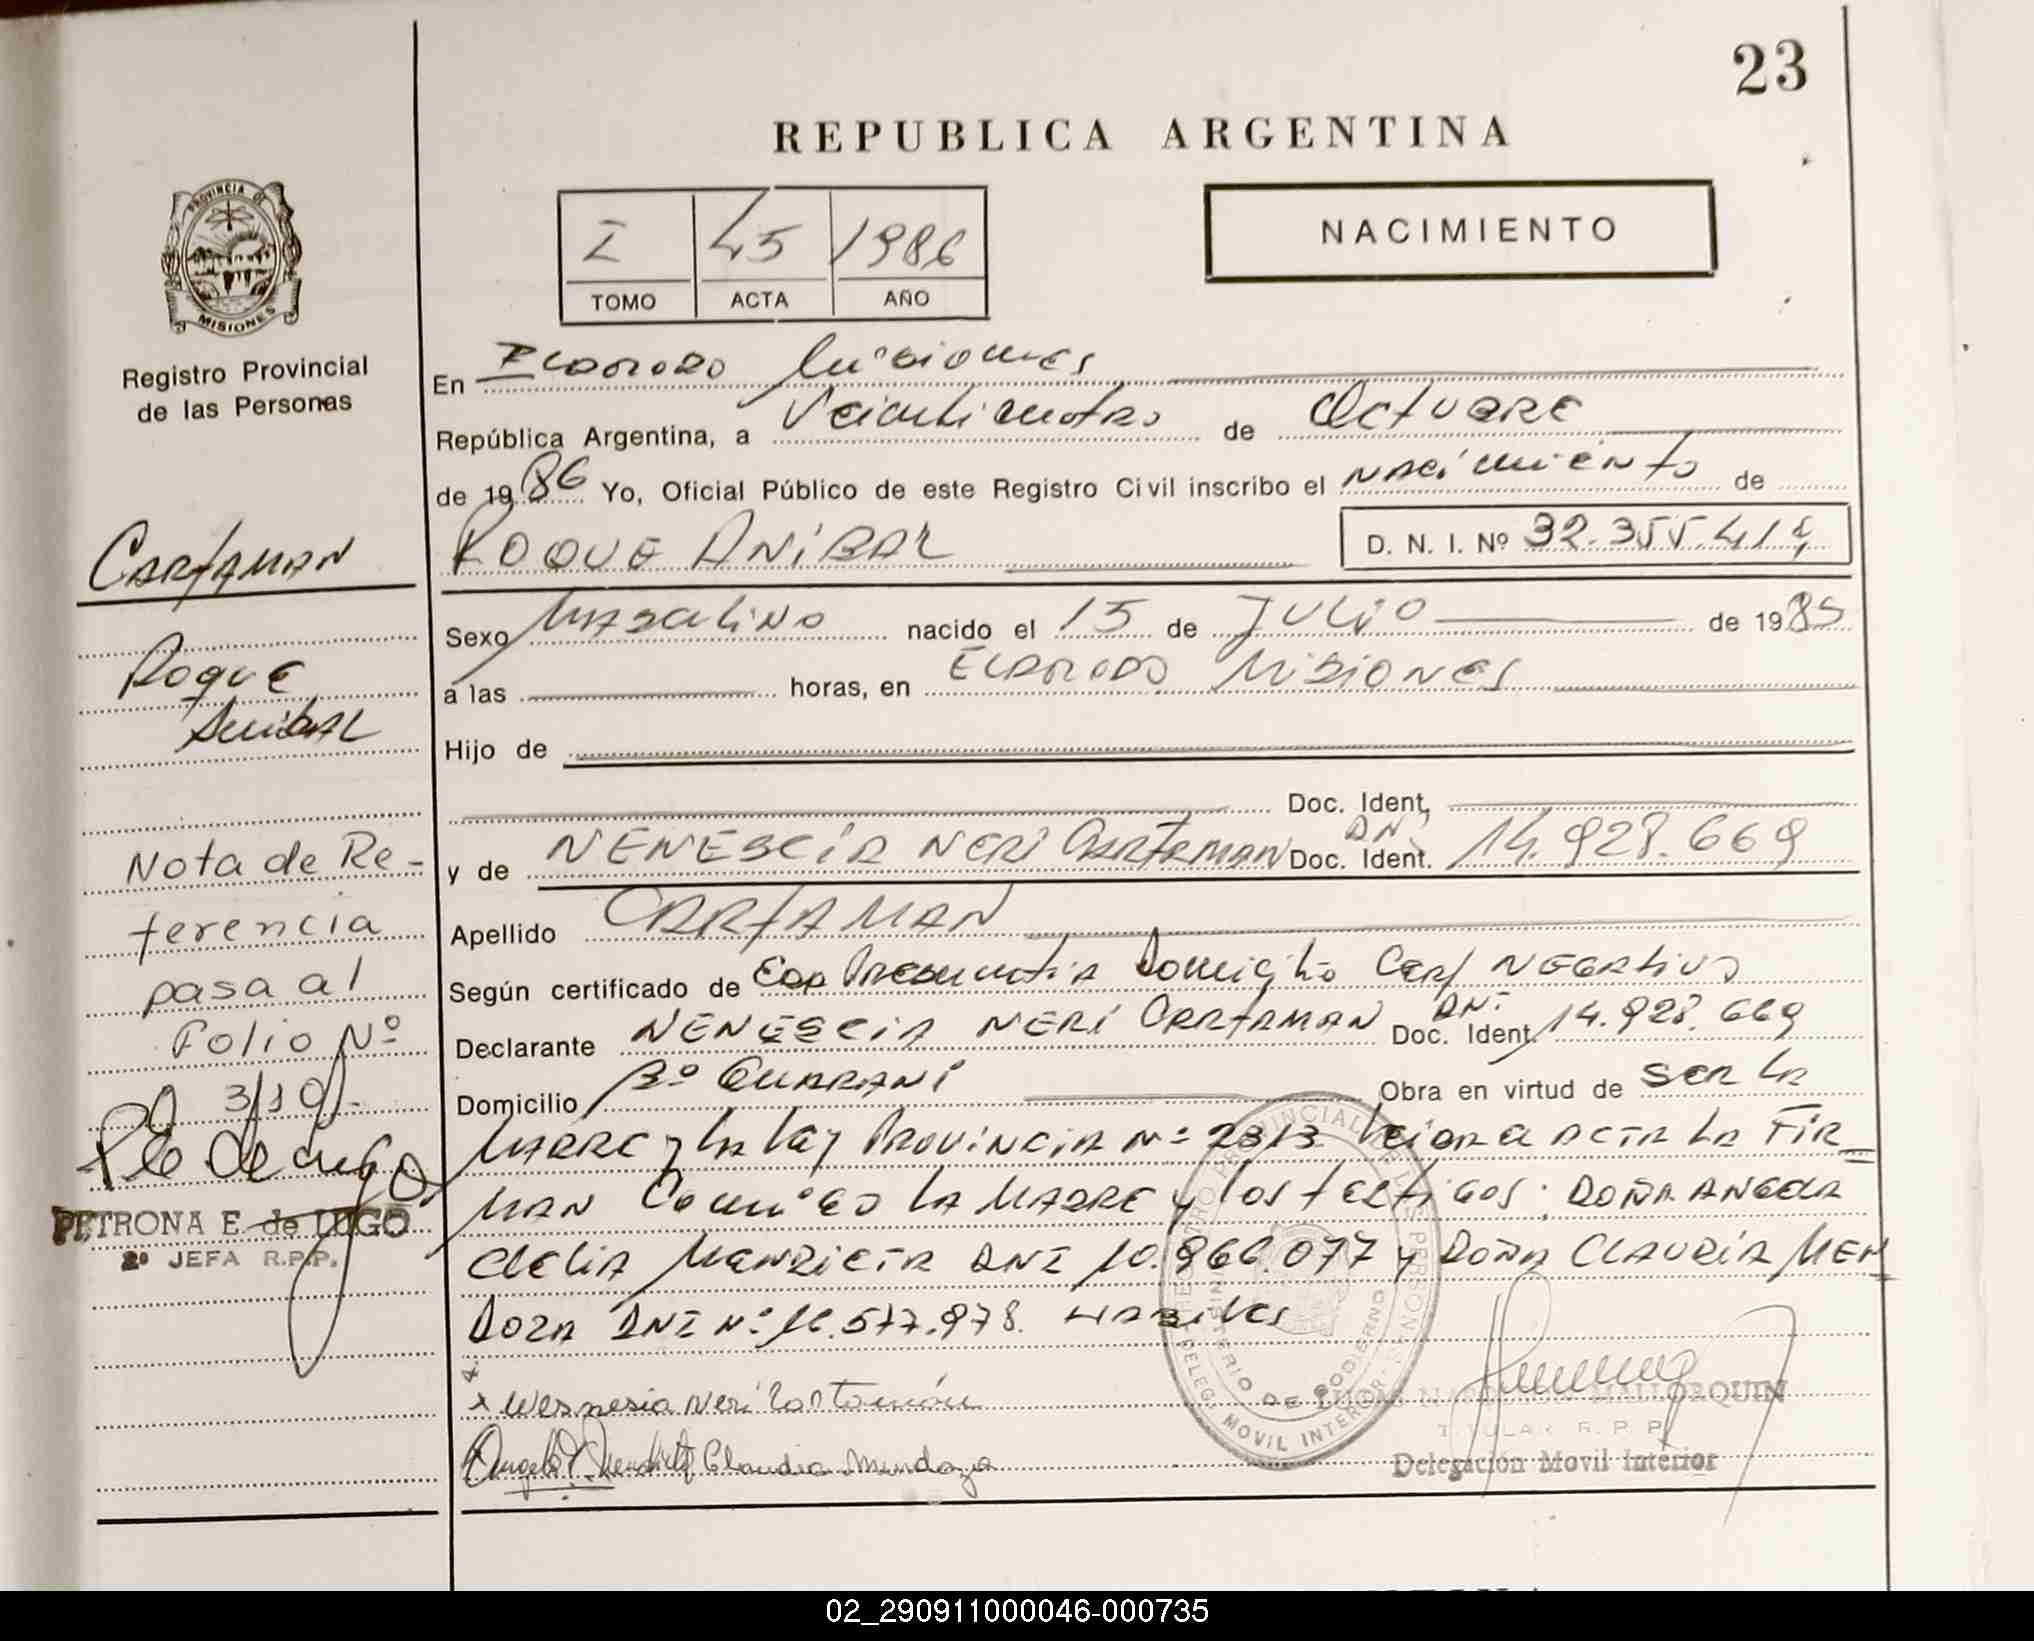 23
REPUBLICA ARGENTINA
I 45 1986
TOMO ACTA AÑO
NACIMIENTO
PROVINCIA DE
MISIONES
Registro Provincial
de las Personas
En Eldorado Misiones
República Argentina, a Veinticuatro de Octubre
de 1986 Yo, Oficial Público de este Registro Civil inscribo el nacimiento de
ROQUE ANIBAL
D. N. I. Nº 32.355.41
Sexo Masculino nacido el 15 de JULIO de 1985
a las horas, en ELDORADO MISIONES
Hijo de
Doc. Ident.
y de NERI CARTAMAN Doc. Ident. DNI 14.928.669
Apellido CARTAMAN
Según certificado de Domicilio Negativo
Declarante NERI CARTAMAN Doc. Ident. DNI 14.928.669
Domicilio Bº GUARANI Obra en virtud de SER LA
MADRE y la Ley Provincia Nº 2313 acta LA FIR
MAN Conmigo LA MADRE y los testigos: DOÑA ANGELA
CLELIA DNI 10.966.077 y DOÑA CLAUDIA MEN
DOZA DNI Nº 16.577.978. HABILES
x Neri Cartamán
Claudia Mendoza
CARTAMAN
Roque
Anibal
Nota de Re-
ferencia
pasa al
Folio Nº
319
PETRONA E. de LUGO
2º JEFA R.P.P.
REGISTRO PROVINCIAL DE LAS PERSONAS
MINISTERIO DE GOBIERNO
DELEG. MOVIL INTERIOR
MALLORQUIN
TITULAR R. P. P.
Delegación Movil Interior
02_290911000046-000735